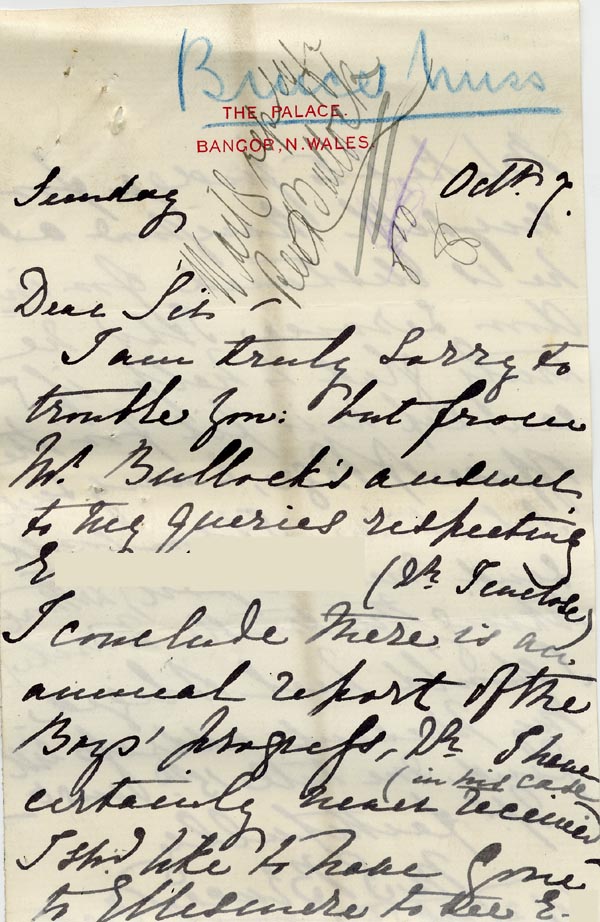 Bruce Miss
THE PALACE.
BANGOR, N. WALES.
Sunday Octr. 7.
Dear Sir –
I am truly sorry to
trouble you: but from
Mr. Bullock's answer
to my queries respecting
E
(wh. I enclose)
I conclude there is an
annual report of the
Boys' progress, wh. I have
(in his case
certainly never received
I shd. like to have gone
to Ellesmere to see E.